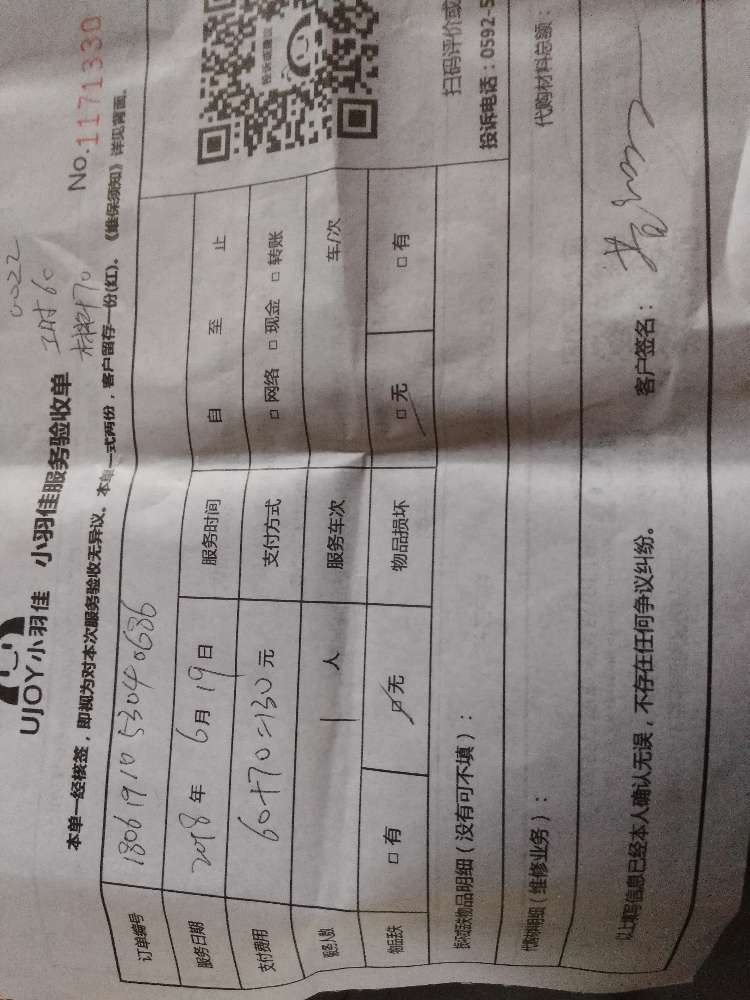 0022
工时60
材料70
UJOY小羽佳 小羽佳服务验收单 No.1171330
本单一经核签，即视为对本次服务验收无异议。本单一式两份，客户留存一份(红)。《维保须知》详见背面。
订单编号 1806191053040636
服务日期 2018年6月19日 服务时间 自 至 止
支付费用 60+70=130元 支付方式 □网络 □现金 □转账
服务人数 1人 服务车次 车/次
物品丢失 □有 □无 物品损坏 □无 □有
损坏或丢失物品明细（没有可不填）：
代购材料明细（维修业务）： 代购材料总额：
投诉或建议
扫码评价或
投诉电话：0592-5
以上填写信息已经本人确认无误，不存在任何争议纠纷。 客户签名：